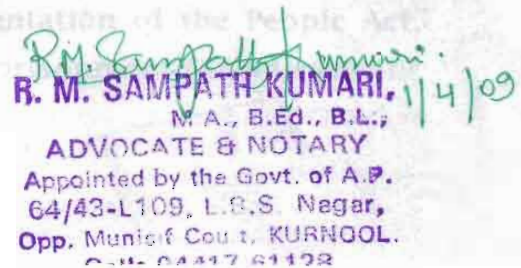 ntation of the People Act,
R.M. Sampath Kumari.
R. M. SAMPATH KUMARI, 1/4/09
M. A., B.Ed., B.L.,
ADVOCATE & NOTARY
Appointed by the Govt. of A.P.
64/43-L109, L.B.S. Nagar,
Opp. Munsif Court, KURNOOL.